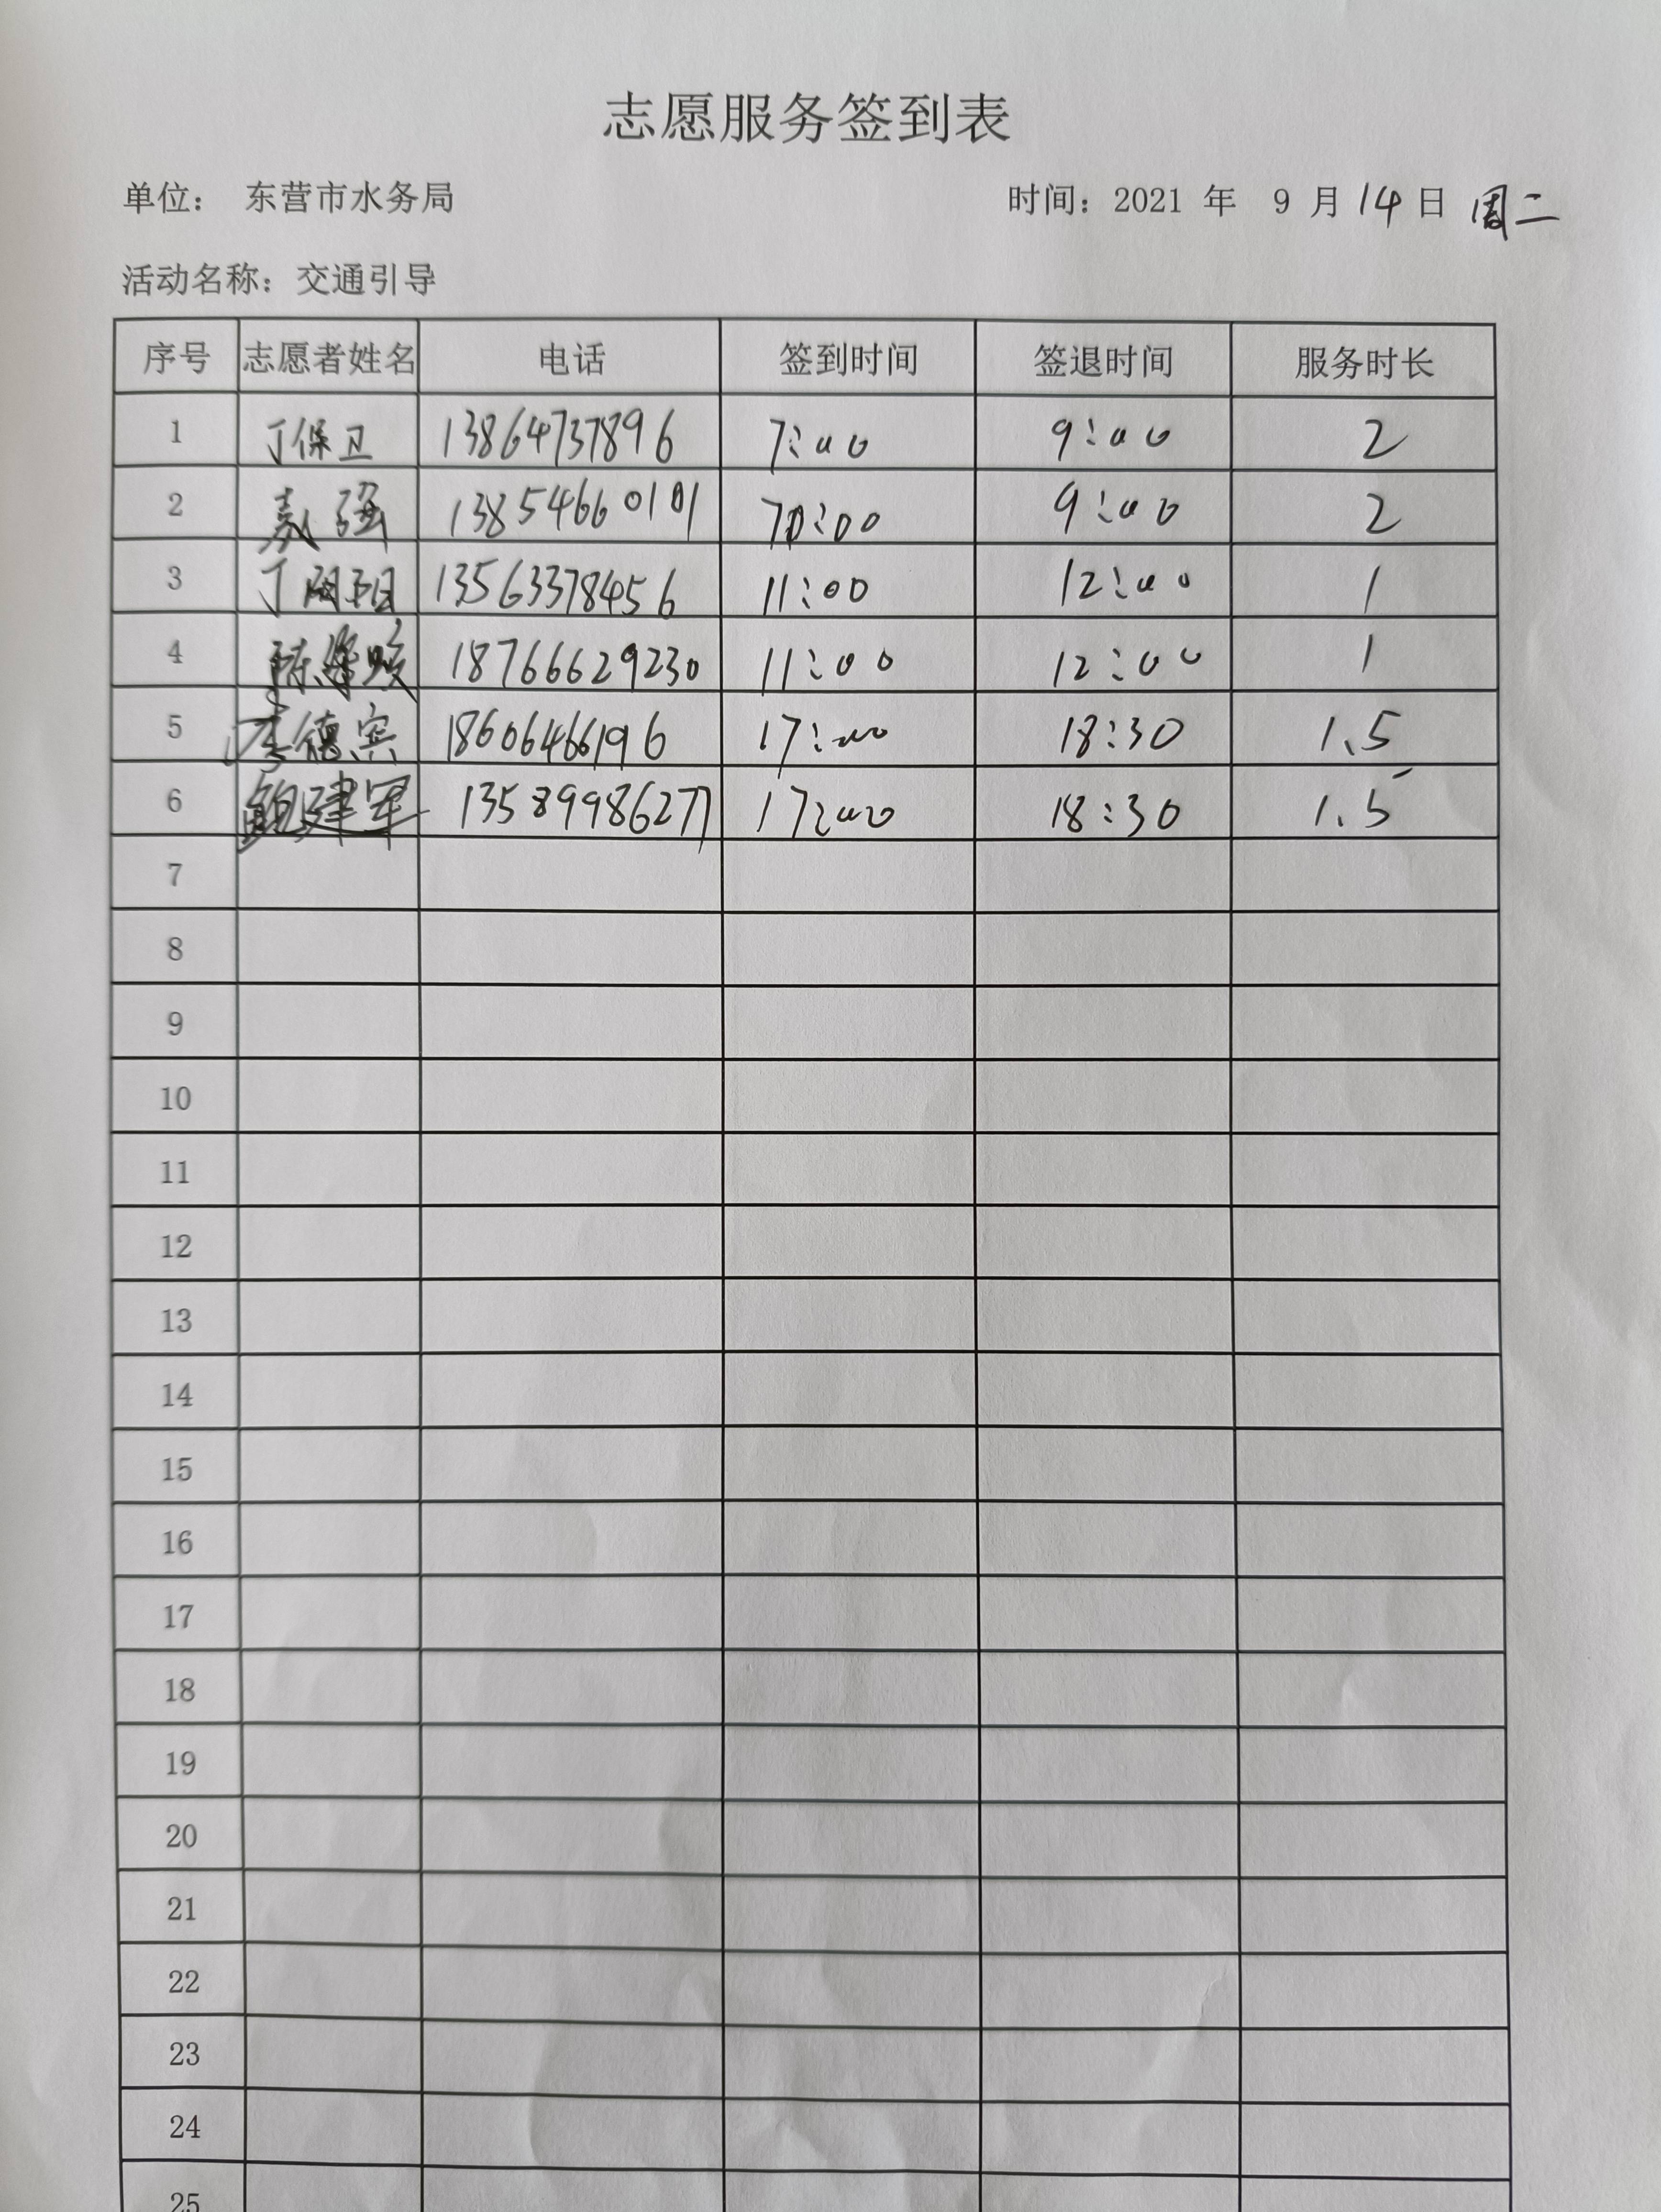 志愿服务签到表
单位： 东营市水务局 时间：2021 年 9 月 14 日 周二
活动名称：交通引导
序号 志愿者姓名 电话 签到时间 签退时间 服务时长
1 丁保卫 13864737896 7:00 9:00 2
2 强 13854660101 7:00 9:00 2
3 丁 13563378456 11:00 12:00 1
4 陈 18766629230 11:00 12:00 1
5 李德宾 18606466196 17:00 18:30 1.5
6 鲍建军 13589986277 17:00 18:30 1.5
7
8
9
10
11
12
13
14
15
16
17
18
19
20
21
22
23
24
25